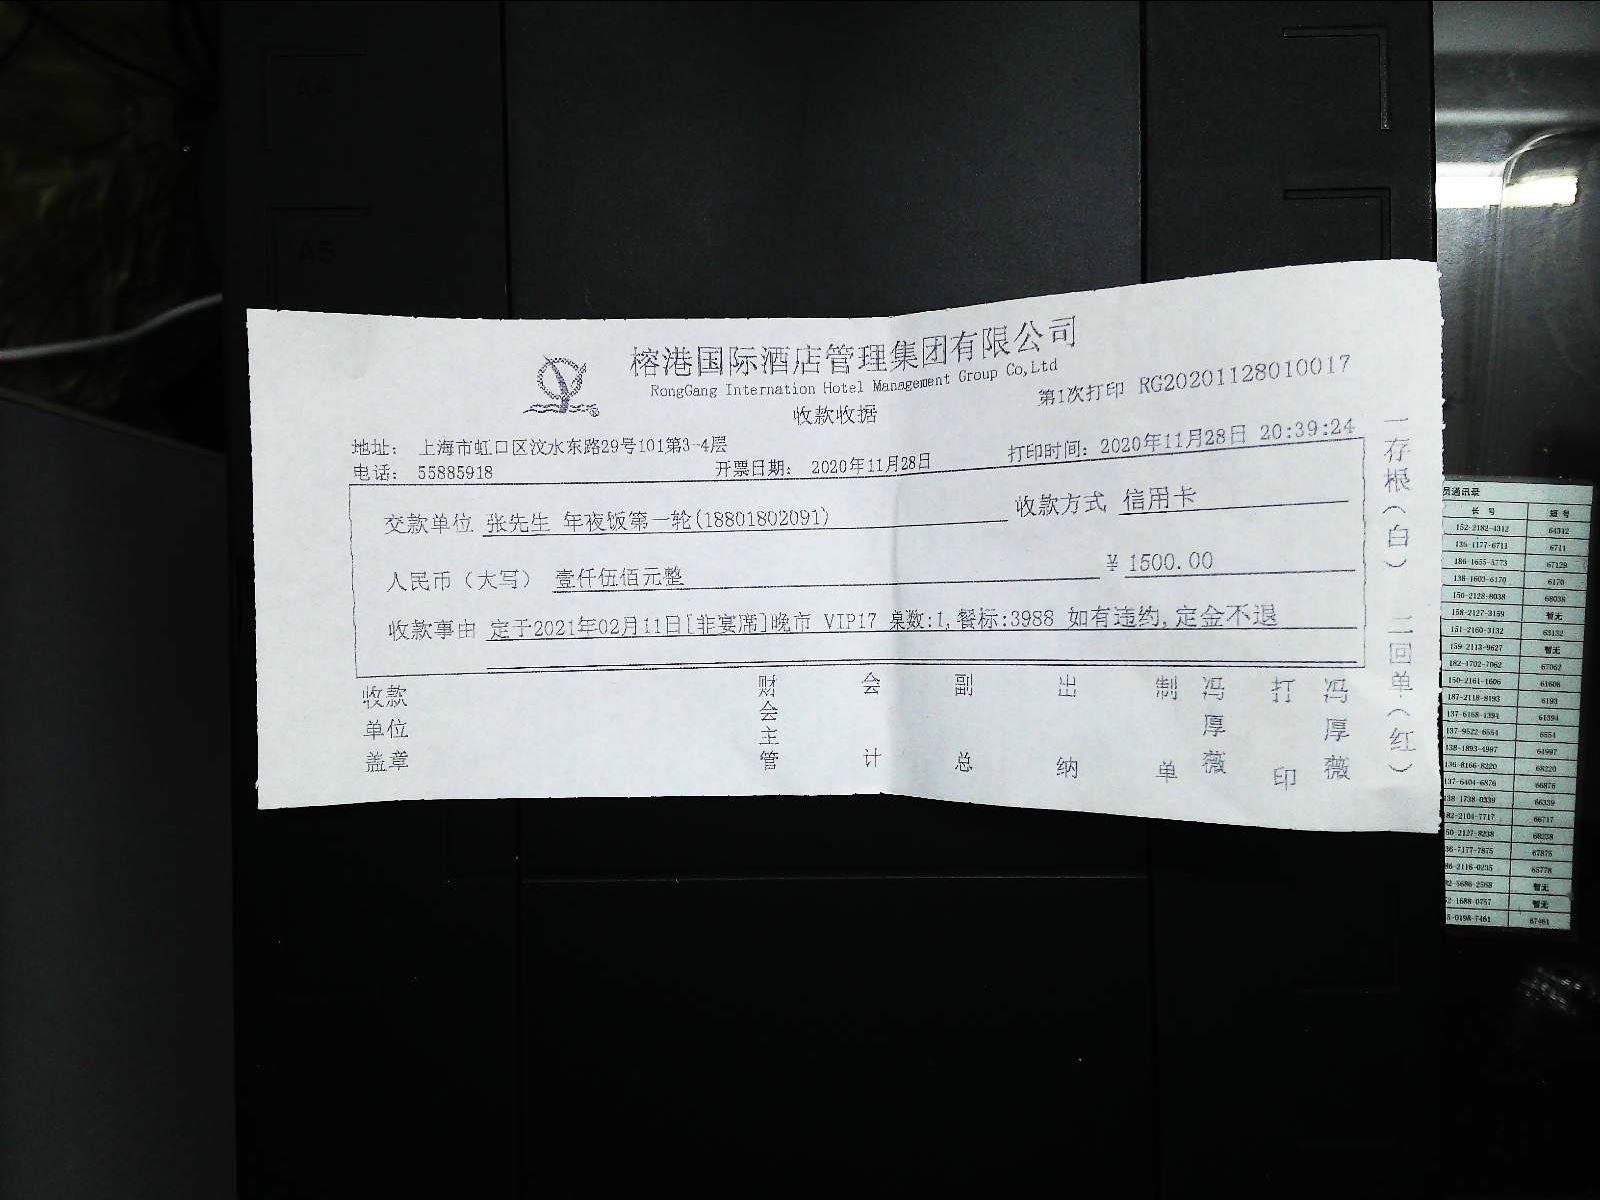 A4
A5
榕港国际酒店管理集团有限公司
RongGang Internation Hotel Management Group Co,Ltd
收款收据
第1次打印 RG20201128010017
地址： 上海市虹口区汶水东路29号101第3-4层
电话： 55885918
开票日期： 2020年11月28日
打印时间: 2020年11月28日 20:39:24
交款单位 张先生 年夜饭第一轮(18801802091)
收款方式 信用卡
人民币（大写） 壹仟伍佰元整
¥ 1500.00
收款事由 定于2021年02月11日[非宴席]晚市 VIP17 桌数:1,餐标:3988 如有违约,定金不退
收款单位盖章
财会主管
会计
副总
出纳
制单 冯厚薇
打印 冯厚薇
一存根（白） 二回单（红）
员通讯录
长 号 短 号
152-2182-4312 64312
136-1177-6711 6711
186-1655-5773 67129
138-1603-6170 6170
150-2128-8038 68038
158-2127-3159 暂无
151-2160-3132 63132
159-2113-9627 暂无
182-1702-7062 67062
150-2161-1606 61606
187-2118-8193 6193
137-6168-1394 61394
137-9522-6554 6554
138-1893-4997 64997
136-8166-8220 68220
137-6404-6876 66876
138-1738-0339 66339
82-2104-7717 66717
50-2127-8238 68238
36-7177-7875 67875
86-2116-0235 65778
82-5686-2568 暂无
52-1688-0757 暂无
5-0198-7461 67461